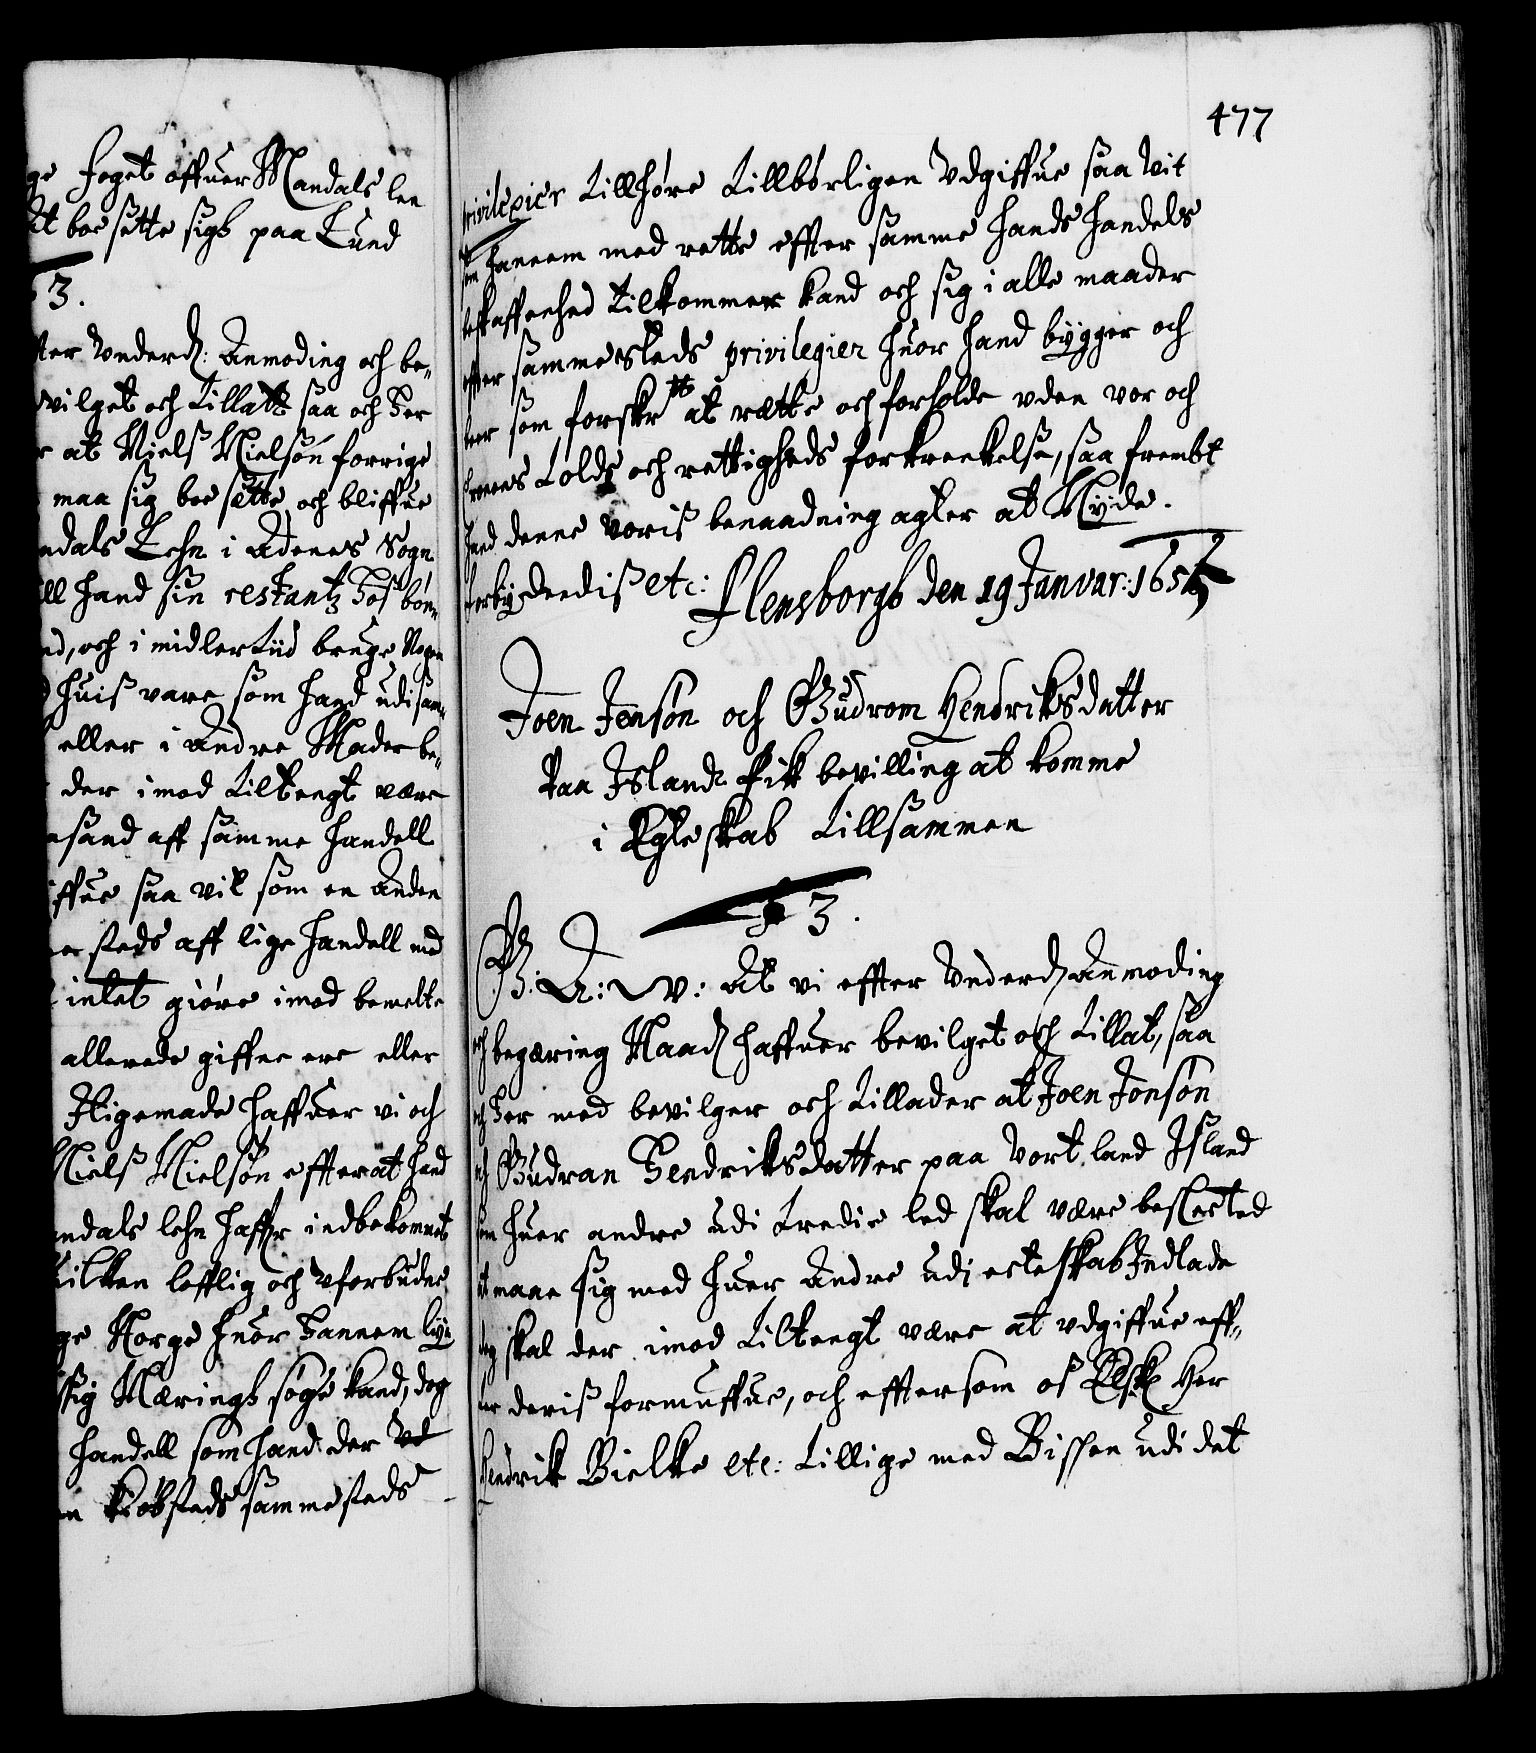 ge Foget offuer Mandals len
at boe sette sigh paa Lund
3.
fter Underd: Anmoding och be„
vilget och Tillatt saa och her
at Niels Nielsøn forrige
maa sig boe sette och bliffue
ndals Lehn i Sogn
ll hand sin restantz hos bøn
d, och i midlertiid bruge Nogen
huis vare som hand udi sam„
eller i Andre Mader be„
der imod tiltengt være
sand aff samme handell
ffue saa vit som en Anden
steds aff lige handell med
intet giøre imod bemelte
allerede giffne ere eller
Iligemade haffuer vi och
Niels Nielsøn efterat hand
ndals lehn haffr indbekommet
uilken lofflig och Uforbuden
ge Norge huor hannem
sig Nærings søge kand, dog
handell som hand der Ud
n kiøbsteds sammesteds
477
privilegier tillhøre tillbørligen Udgiffue saa vit
som hannem med rette effter samme hands handels
beskaffenhed tilkommer kand och sig i alle maader
effter sammesteds privilegier huor hand bygger och
boer som forskr tt at rætte och forholde uden vor och
Cronens Tolds och rettigheds forkrenkelse, saa frembt
hand denne voris benaadning agter at Nyde.
forbiydendis etc: Flensborgh den 19 Januar: 165
Joen Jensøn och Gudrom Hendriksdatter
Paa Island fik bevilling at komme
i Egteskab tillsammen
3.
G: A: V: At vi effter Underd Anmoding
och begæring Naad haffuer bevilget och tillat, saa
och her med bevilger och tillader at Joen Jonsøn
och Gudran Hendriksdatter paa vort land Island
som huer andre udi tredie led skal være beslected
at maae sig med huer Andre udi ecteskab Indlade
dog skal der imod tiltengt være at udgiffue eff„
ter deris formuffue, och effter som os Elsk Her
Hendrik Bielke etc: tillige med Bispen udi det